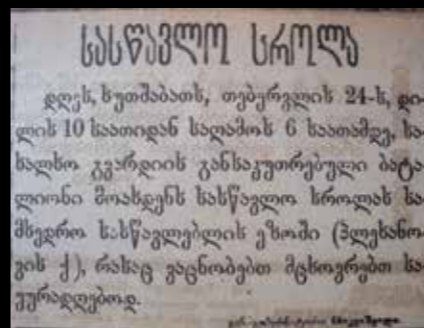 სასწავლო სროლა
დღეს, ხუთშაბათს, თებერვლის 24-ს, დი-
ლის 10 საათიდან საღამოს 6 საათამდე, სა-
ხალხო გვარდიის განსაკუთრებული ბატა-
ლიონი მოახდენს სასწავლო სროლას სა-
მხედრო სასწავლებლის ეზოში (პლეხანო-
ვის ქ.), რასაც ვაცნობებთ მცხოვრებთ სა-
ყურადღებოდ.